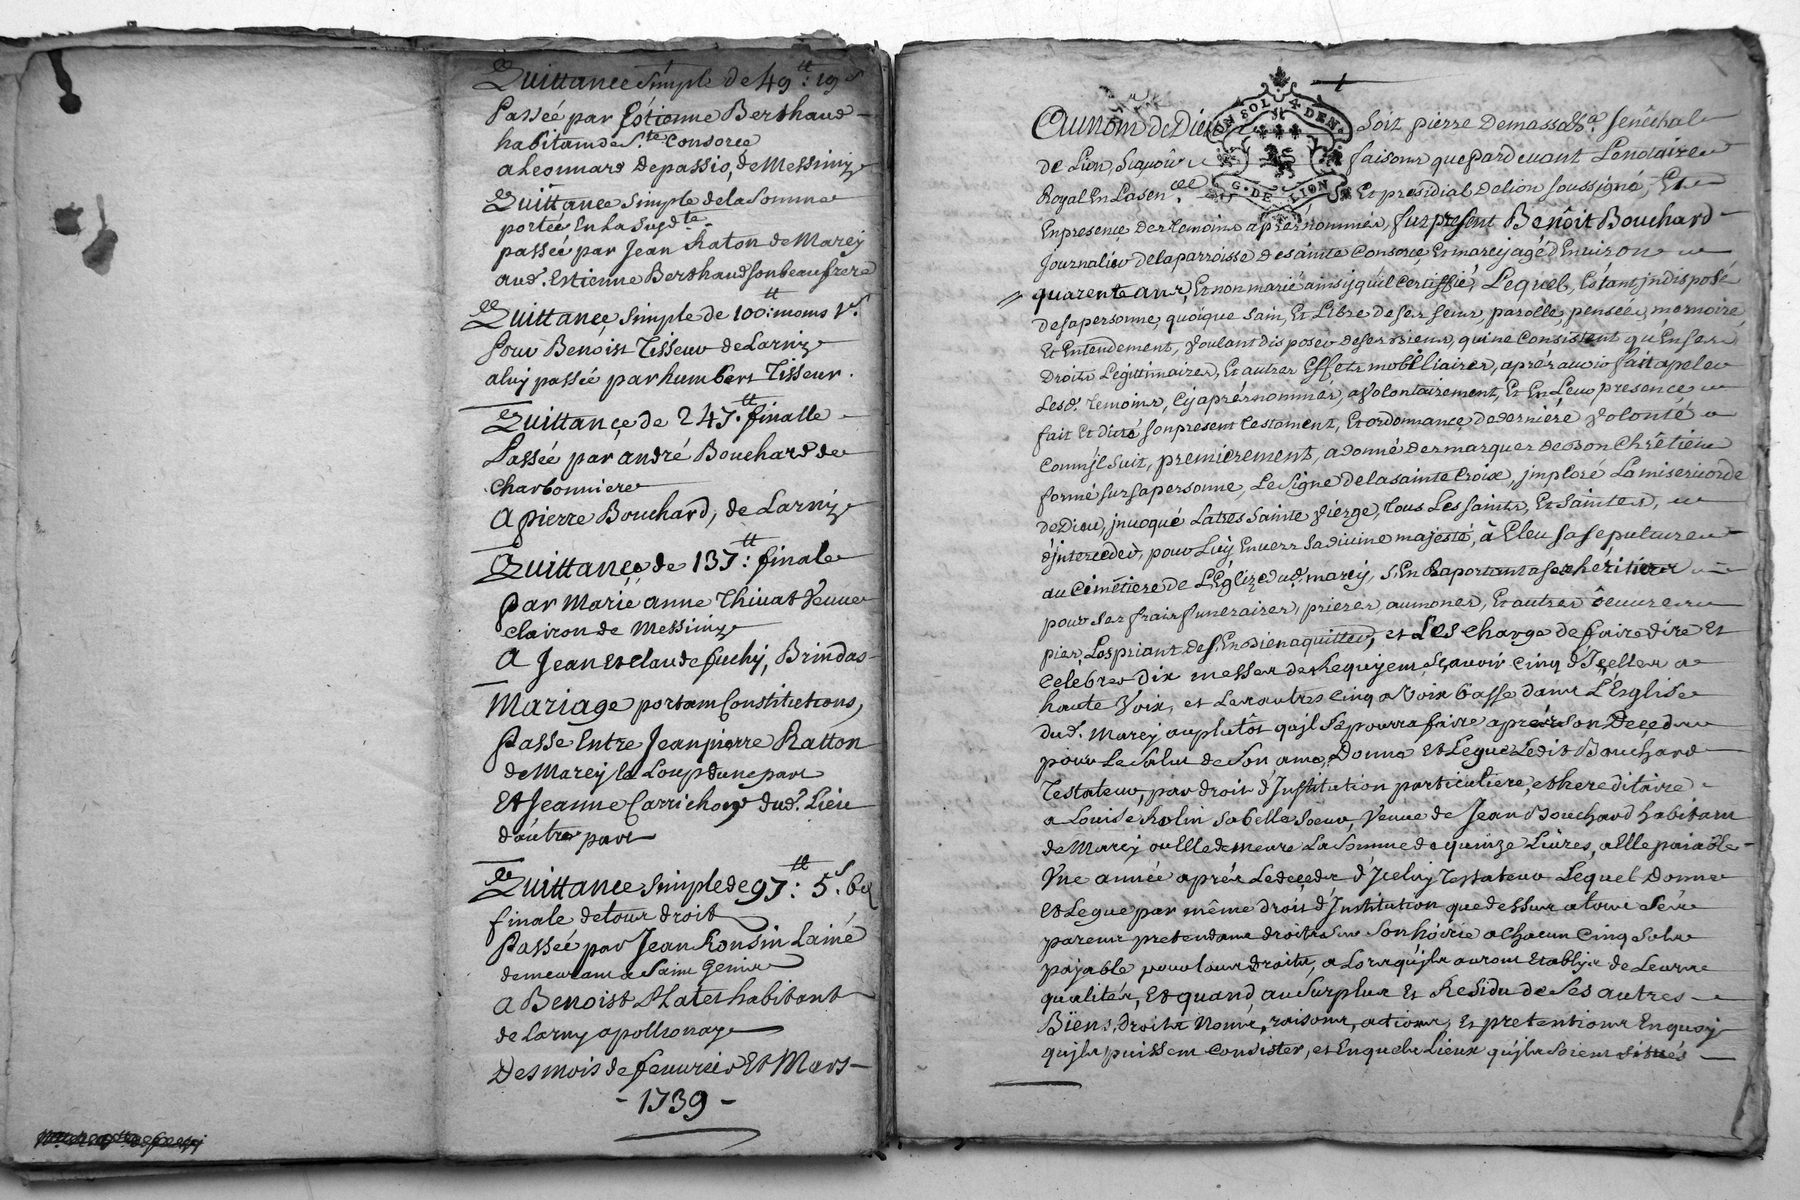 Quittance simple de 49tt: 19s
Passée par Estienne Berthaud
habitam de Ste Consorce
a Leonnard Depassio, de Messimy
Quittance simple de la somme
portée En la susdte
passée par Jean Raton de Marcy
aud. Estienne Berthaud son beau frere
Quittance simple de 100tt: moins Vs
pour Benoist Tisseur de Larny
a luy passée par humbert Tisseur.
Quittance de 247tt finalle
Passée par andré Bouchard de
Charbonniere
A pierre Bouchard, de Larny
Quittance de 137tt: finale
par Marie anne Thivat Veuve
clairon de Messimy
A Jean et claude fuchy, Brindas
Mariage portam Constitutions,
Passe Entre Jeanpierre Ratton
de Marcy la Loup dune part
Et Jeanne Carrichon dud. Lieu
d'autre part
Quittance simple de 97tt: 5s. 6d
finale de tour droit
Passée par Jean Ronsin Lainé
demeurant a Saint Genis
A Benoist habitant
de Larny apollionay
Des mois de fevrier Et Mars
- 1739 -
GN SOL 4 DEN.
G. DE LION
Au nom de Dieu Soit pierre Demassso Sa. Senêchal
de Lion, Sçavoir faisons que pardevant Le notaire
Royal En Lasencée Et presidial de lion soussigné, Et
En presence des temoins aprés nommés, fut présent Benôit Bouchard
Journalier de la parroisse de sainte Consorce Et marcy agé d'Environ
quarente ans, Et non marié ainsy qu'il certiffie, Lequel, Estant jndisposé
de sa personne, quoique sain, Et Libre de ses sens, parolle, pensée, memoire
Et Entendement, voulant disposer de ses biens, qui ne consistent qu'En ses
Droits Legittimaires, Et autres Effets mobiliaires, aprés avoir fait apeler
Lesd. temoins, Cy aprés nommés, a volontairement, Et En Leur presence
fait Et dicté son present testament, Et ordonnance de derniere volonté
comm'jl suit, premierement, a donné des marques de bon Chrêtien
formé sur sa personne, Le signe de la sainte Croix, jmploré La misericorde
de Dieu, jnvoqué La trés Sainte vierge, tous Les saints, Et saintes,
d'jnterceder, pour Luy Envers sa divine majesté, à Eleu sa sepulture
au Cimêtiere de L'Eglize dud. marcy, s'En Raportant a ses hêritiers
pour ses frais funeraires, prieres, aumones, Et autres oeuvres
pies, Les priant de s'En bien aquitter, et Les charge de faire dire Et
celebrer dix messes de Requiem sçavoir cinq d'Jcelles a
haute voix, et Les autres cinq a voix basse dans L'Eglise
dud. Marcy au plutôt qu'jl se pourra faire aprés son Decede
pour Le Salut de Son ame, Donne Et Legue Ledit Bouchard
Testateur, par droit d'Jnstitution particuliere, et hereditaire
a Louise Rolin sa belle soeur, Veuve de Jean Bouchard habitant
de Marcy ou Elle demeure La Somme de quinze Livres, a Elle paiable
Une année aprés Le decede d'Jceluy Testateur Lequel Donne
Et Legue par même droit d'Jnstitution que dessus a tous Ses
parens pretendans droits sur Son hoirie a chacun cinq sols
payable pour tous droits, a Lors qu'jls auront Etablys de Leurs
qualités, Et quand, au Surplus Et Residu de Ses autres
Biens, droits Noms, raisons, actions, Et pretentions En quoy
qu'jls puissent consister, et En quels Lieux qu'jls Soient situés